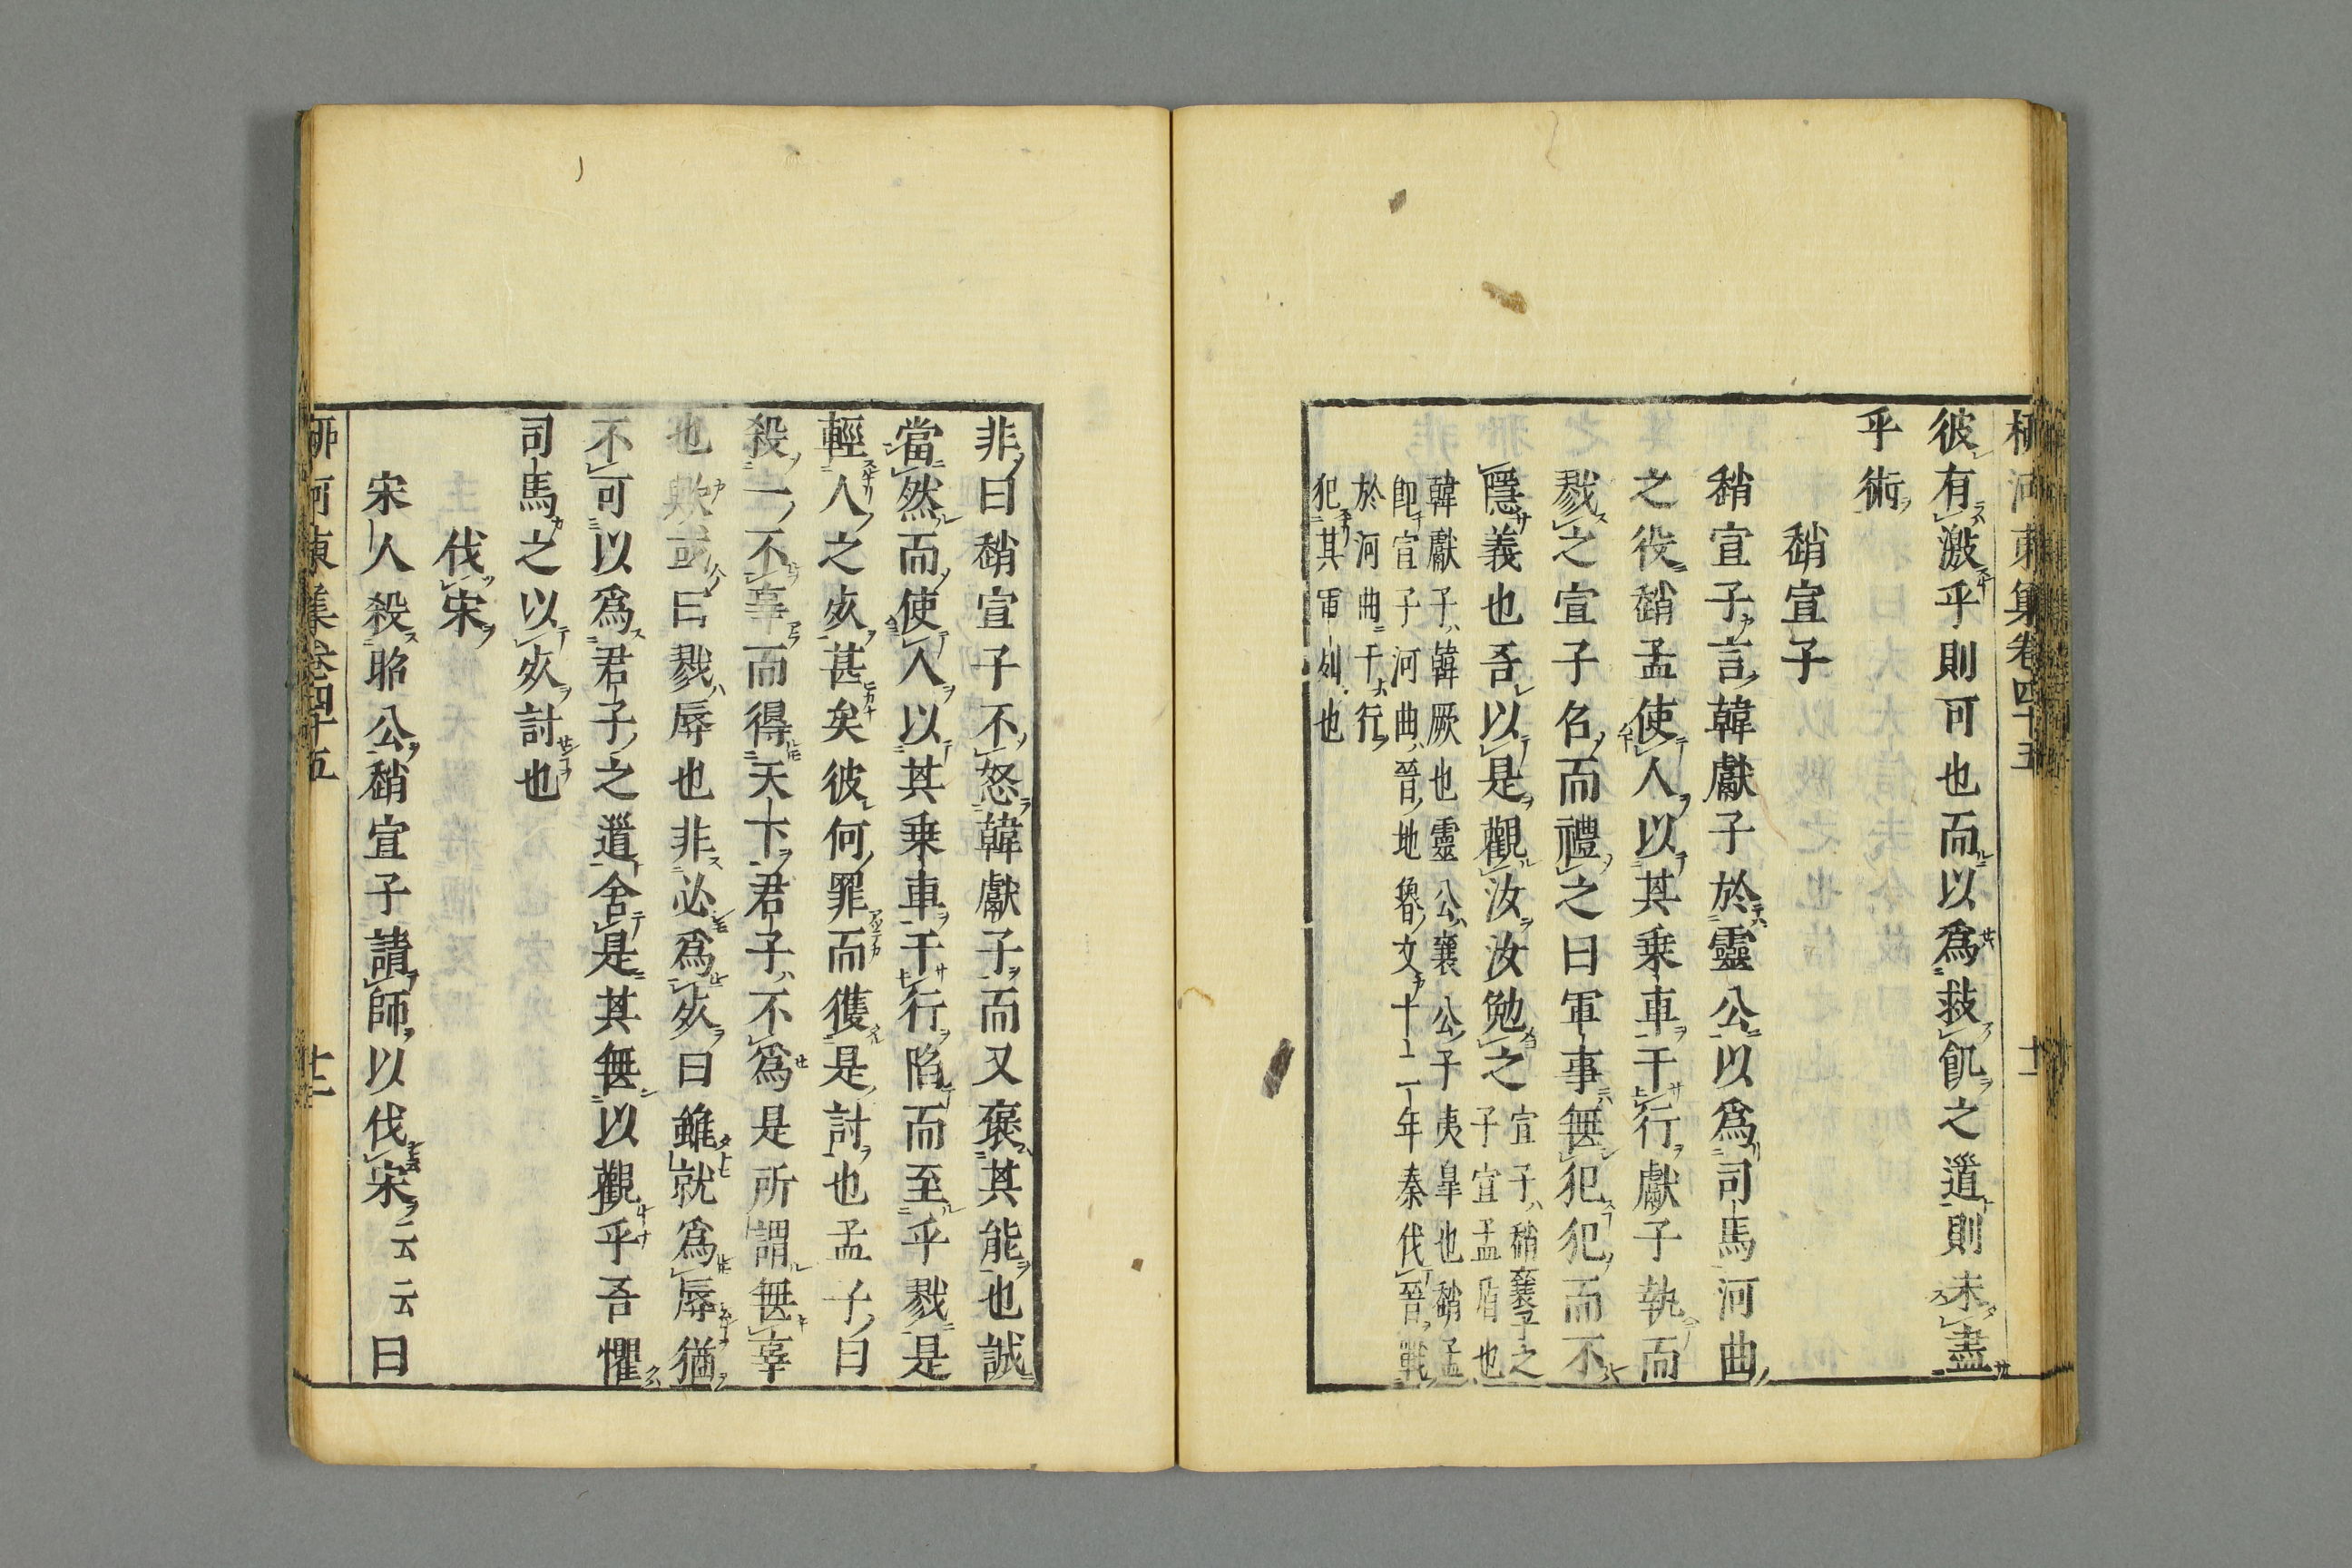 柳河東集卷四十五
彼有激乎則可也而以爲救飢之道則未盡
乎術
趙宣子
趙宣子言韓獻子於靈公以爲司馬河曲
之役趙孟使人以其乗車干行獻子執而
戮之宣子召而禮之曰軍事無犯犯而不
隱義也吾以是觀汝汝勉之宣子趙襄子之
子宣孟盾也
韓獻子韓厥也靈公襄公子夷臯也趙孟
即宣子河曲晉地魯文十二年秦伐晉戰
於河曲干行
犯其軍列也
非曰趙宣子不怒韓獻子而又褒其能也誠
當然而使人以其乗車干行陷而至乎戮是
輕人之死甚矣彼何罪而獲是討也孟子曰
殺一不辜而得天下君子不爲是所謂無辜
也歟或曰戮辱也非必爲死曰雖就爲辱猶
不可以爲君子之道舍是其無以觀乎吾懼
司馬之以死討也
伐宋
宋人殺昭公趙宣子請師以伐宋云云曰
柳河東集卷四十五